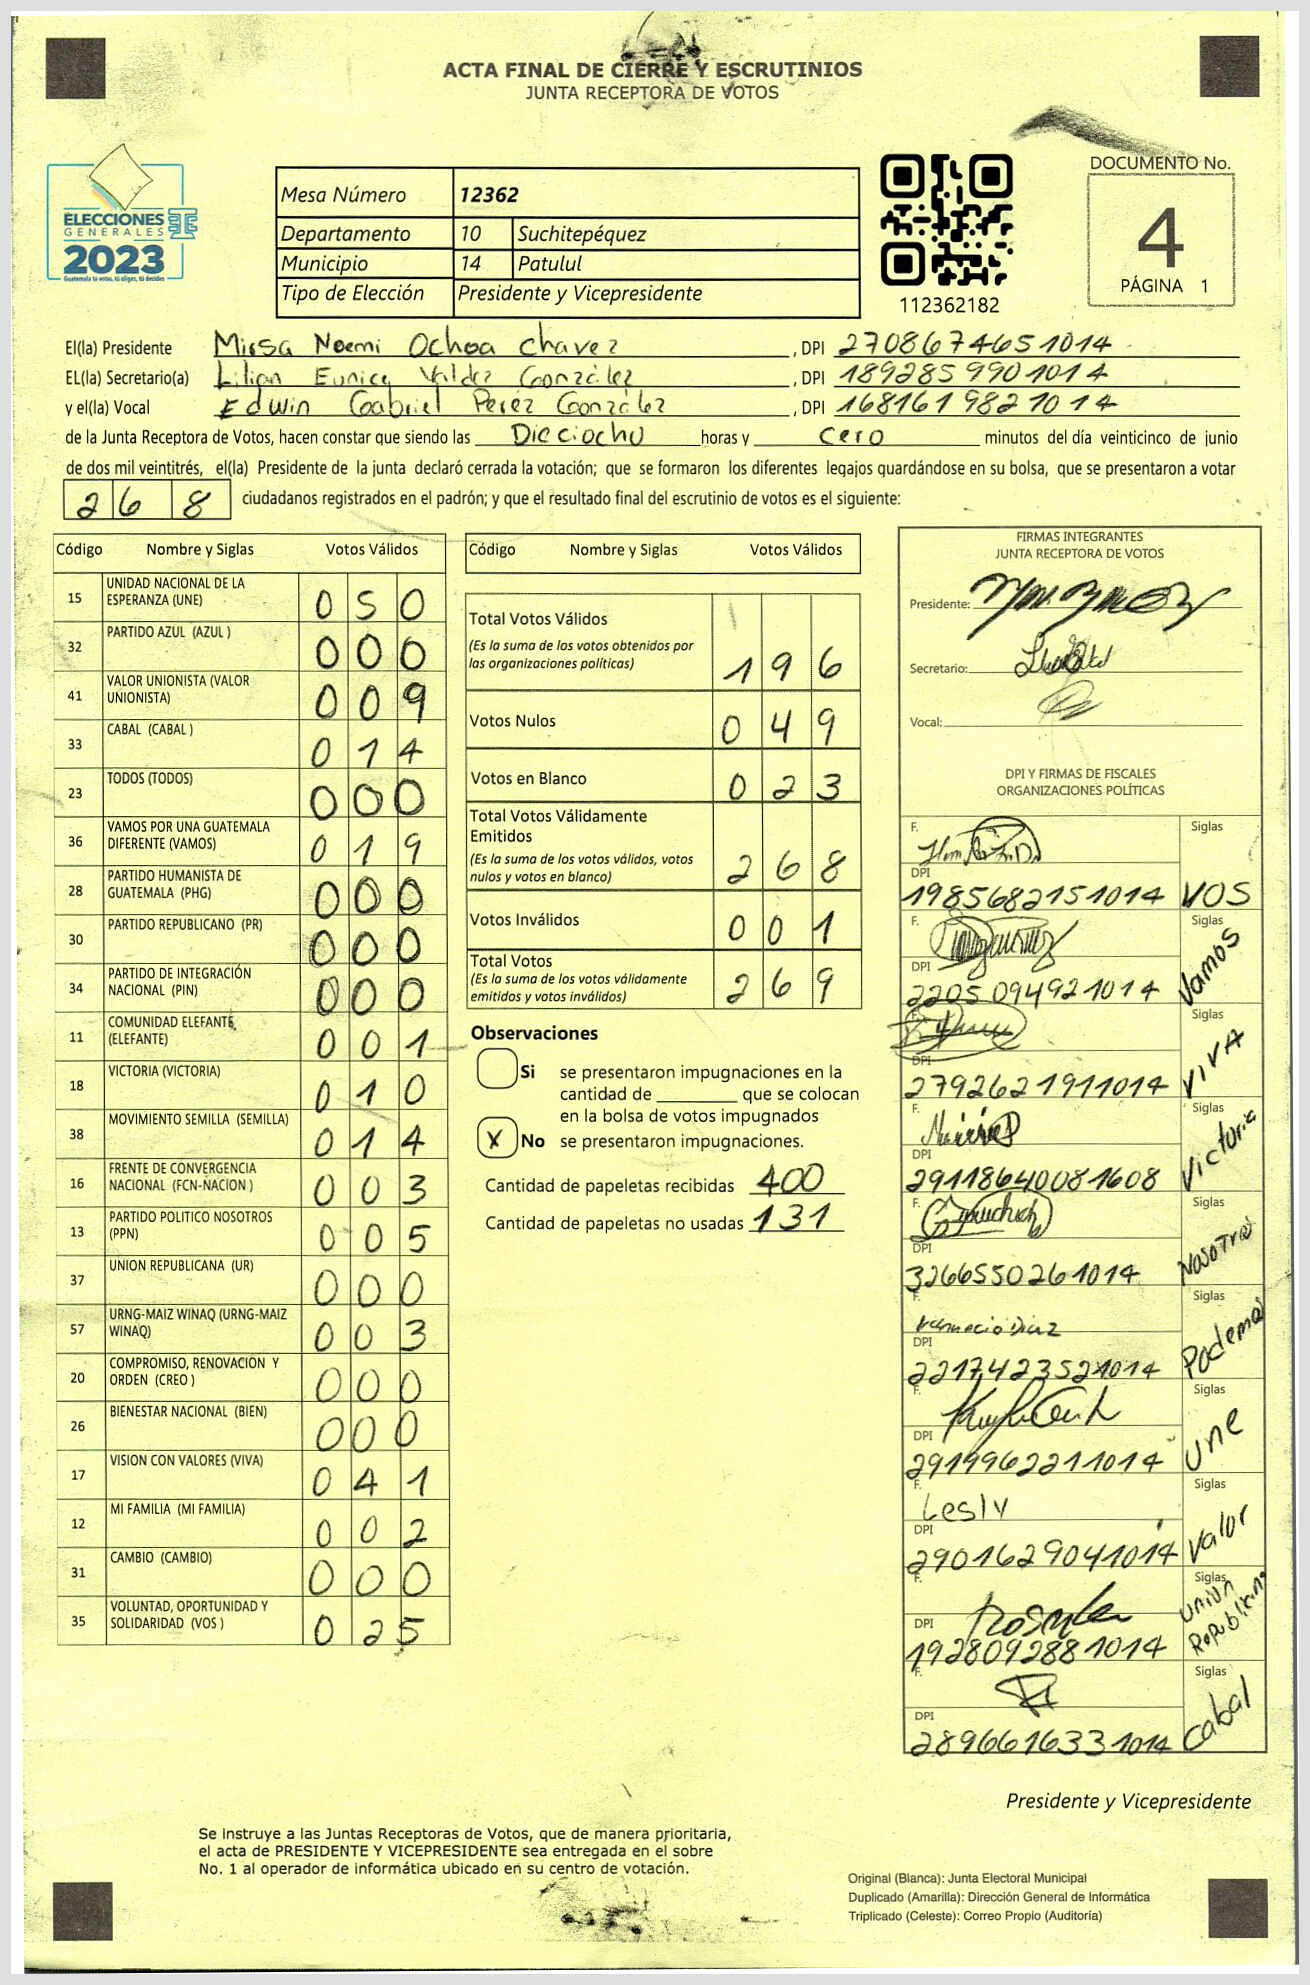 ACTA FINAL DE CIERRE Y ESCRUTINIOS
JUNTA RECEPTORA DE VOTOS
ELECCIONES
GENERALES
2023
Guatemala tú votas, tú eliges, tú decides
Mesa Número 12362
Departamento 10 Suchitepéquez
Municipio 14 Patulul
Tipo de Elección Presidente y Vicepresidente
112362182
DOCUMENTO No.
4
PÁGINA 1
El(la) Presidente Mirsa Noemi Ochoa Chavez, DPI 2708674651014
EL(la) Secretario(a) Lilian Eunice Valdez González, DPI 1892859901014
y el(la) Vocal Edwin Gabriel Perez González, DPI 1681619821014
de la Junta Receptora de Votos, hacen constar que siendo las Dieciocho horas y cero minutos del día veinticinco de junio
de dos mil veintitrés, el(la) Presidente de la junta declaró cerrada la votación; que se formaron los diferentes legajos quardándose en su bolsa, que se presentaron a votar
268 ciudadanos registrados en el padrón; y que el resultado final del escrutinio de votos es el siguiente:
Código Nombre y Siglas Votos Válidos
15 UNIDAD NACIONAL DE LA ESPERANZA (UNE) 050
32 PARTIDO AZUL (AZUL ) 000
41 VALOR UNIONISTA (VALOR UNIONISTA) 009
33 CABAL (CABAL ) 014
23 TODOS (TODOS) 000
36 VAMOS POR UNA GUATEMALA DIFERENTE (VAMOS) 019
28 PARTIDO HUMANISTA DE GUATEMALA (PHG) 000
30 PARTIDO REPUBLICANO (PR) 000
34 PARTIDO DE INTEGRACIÓN NACIONAL (PIN) 000
11 COMUNIDAD ELEFANTE (ELEFANTE) 001
18 VICTORIA (VICTORIA) 010
38 MOVIMIENTO SEMILLA (SEMILLA) 014
16 FRENTE DE CONVERGENCIA NACIONAL (FCN-NACION ) 003
13 PARTIDO POLITICO NOSOTROS (PPN) 005
37 UNION REPUBLICANA (UR) 000
57 URNG-MAIZ WINAQ (URNG-MAIZ WINAQ) 003
20 COMPROMISO, RENOVACION Y ORDEN (CREO ) 000
26 BIENESTAR NACIONAL (BIEN) 000
17 VISION CON VALORES (VIVA) 041
12 MI FAMILIA (MI FAMILIA) 002
31 CAMBIO (CAMBIO) 000
35 VOLUNTAD, OPORTUNIDAD Y SOLIDARIDAD (VOS ) 025
Código Nombre y Siglas Votos Válidos
Total Votos Válidos
(Es la suma de los votos obtenidos por
las organizaciones políticas) 196
Votos Nulos 049
Votos en Blanco 023
Total Votos Válidamente
Emitidos
(Es la suma de los votos válidos, votos
nulos y votos en blanco) 268
Votos Inválidos 001
Total Votos
(Es la suma de los votos válidamente
emitidos y votos inválidos) 269
Observaciones
Si se presentaron impugnaciones en la
cantidad de ________ que se colocan
en la bolsa de votos impugnados
X No se presentaron impugnaciones.
Cantidad de papeletas recibidas 400
Cantidad de papeletas no usadas 131
FIRMAS INTEGRANTES
JUNTA RECEPTORA DE VOTOS
Presidente:
Secretario:
Vocal:
DPI Y FIRMAS DE FISCALES
ORGANIZACIONES POLÍTICAS
F. Siglas
DPI
1985682151014 VOS
F. Siglas
DPI
2205094921014 Vamos
F. Siglas
DPI
2792621911014 VIVA
F. Siglas
DPI
29118640081608 Victoria
F. Siglas
DPI
3266550261014 Nosotros
F. Siglas
DPI
2217423521014 Podemos
F. Siglas
DPI
2919962211014 Une
F. Lesly Siglas
DPI
2901629041014 Valor
F. Siglas
DPI
1928092881014 Union Republicana
F. Siglas
DPI
2896616331014 Cabal
Presidente y Vicepresidente
Se instruye a las Juntas Receptoras de Votos, que de manera prioritaria,
el acta de PRESIDENTE Y VICEPRESIDENTE sea entregada en el sobre
No. 1 al operador de informática ubicado en su centro de votación.
Original (Blanca): Junta Electoral Municipal
Duplicado (Amarilla): Dirección General de Informática
Triplicado (Celeste): Correo Propio (Auditoría)